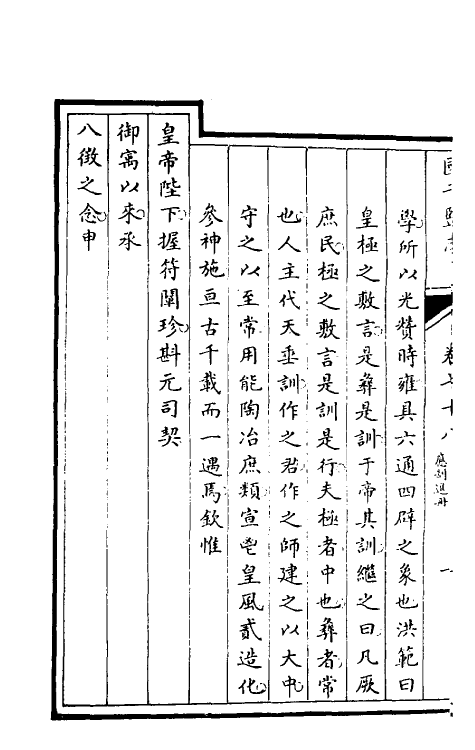 學所以光贊時雍具六通四辟之象也洪範曰
皇極之敷言是彝是訓于帝其訓繼之曰凡厥
庶民極之敷言是訓是行夫極者中也彝者常
也人主代天垂訓作之君作之師建之以大中
守之以至常用能陶冶庶類宣鬯皇風貳造化
參神施亘古千載而一遇焉欽惟
皇帝陛下握符闡珍斟元司契
御㝢以來承
八徵之念申